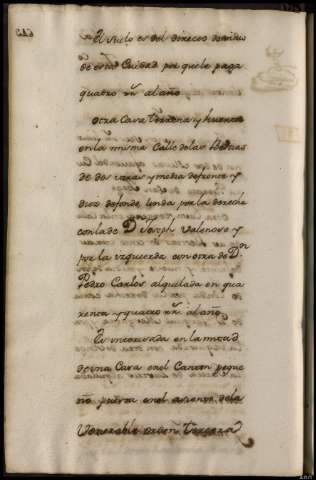 El suelo es del directo dominio
de esta Ciudad por que le paga
quatro rr.s al año
Otra Casa terrena y huerta
en la misma Calle de las
de dos varas y media de frente y
diez de fondo, linda por la derecha
con la de D.n Joseph Valenos y
por la izquierda con otra de D.n
Pedro Carlos alquilada en qua
renta y quatro rr.s al año
Es interesada en la mitad
de una Casa en el Canton peque
ño puerta en el de la
Venerable orden tercera